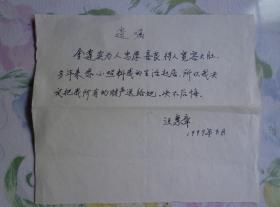 遗嘱
金莲英为人忠厚善良待人宽容大肚
多年来悉心照料我的生活起居,所以我决
定把我所有的财产送给她,决不后悔.
汪惠章
1999年8月